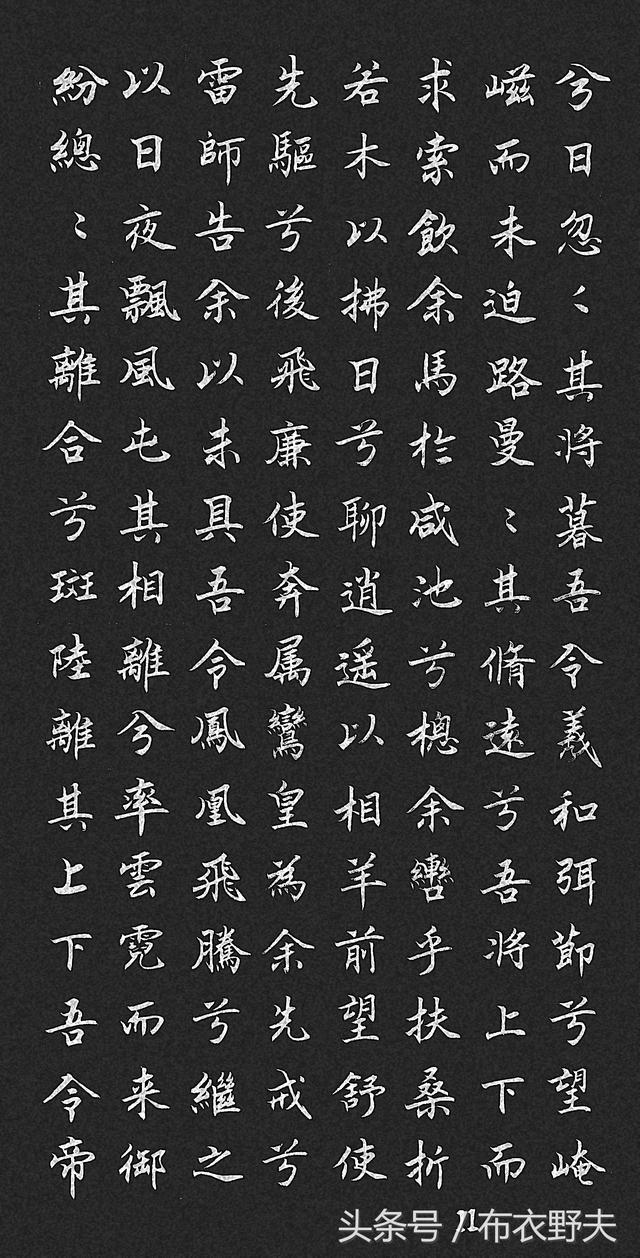 兮日忽〻其将暮吾令羲和弭節兮望崦
嵫而未迫路曼〻其脩遠兮吾将上下而
求索飲余馬於咸池兮総余轡乎扶桑折
若木以拂日兮聊逍遥以相羊前望舒使
先驅兮後飛廉使奔属鸞皇為余先戒兮
雷師告余以未具吾令鳳凰飛騰兮繼之
以日夜飄風屯其相離兮率雲霓而来御
紛總〻其離合兮斑陸離其上下吾令帝
11
头条号 / 布衣野夫